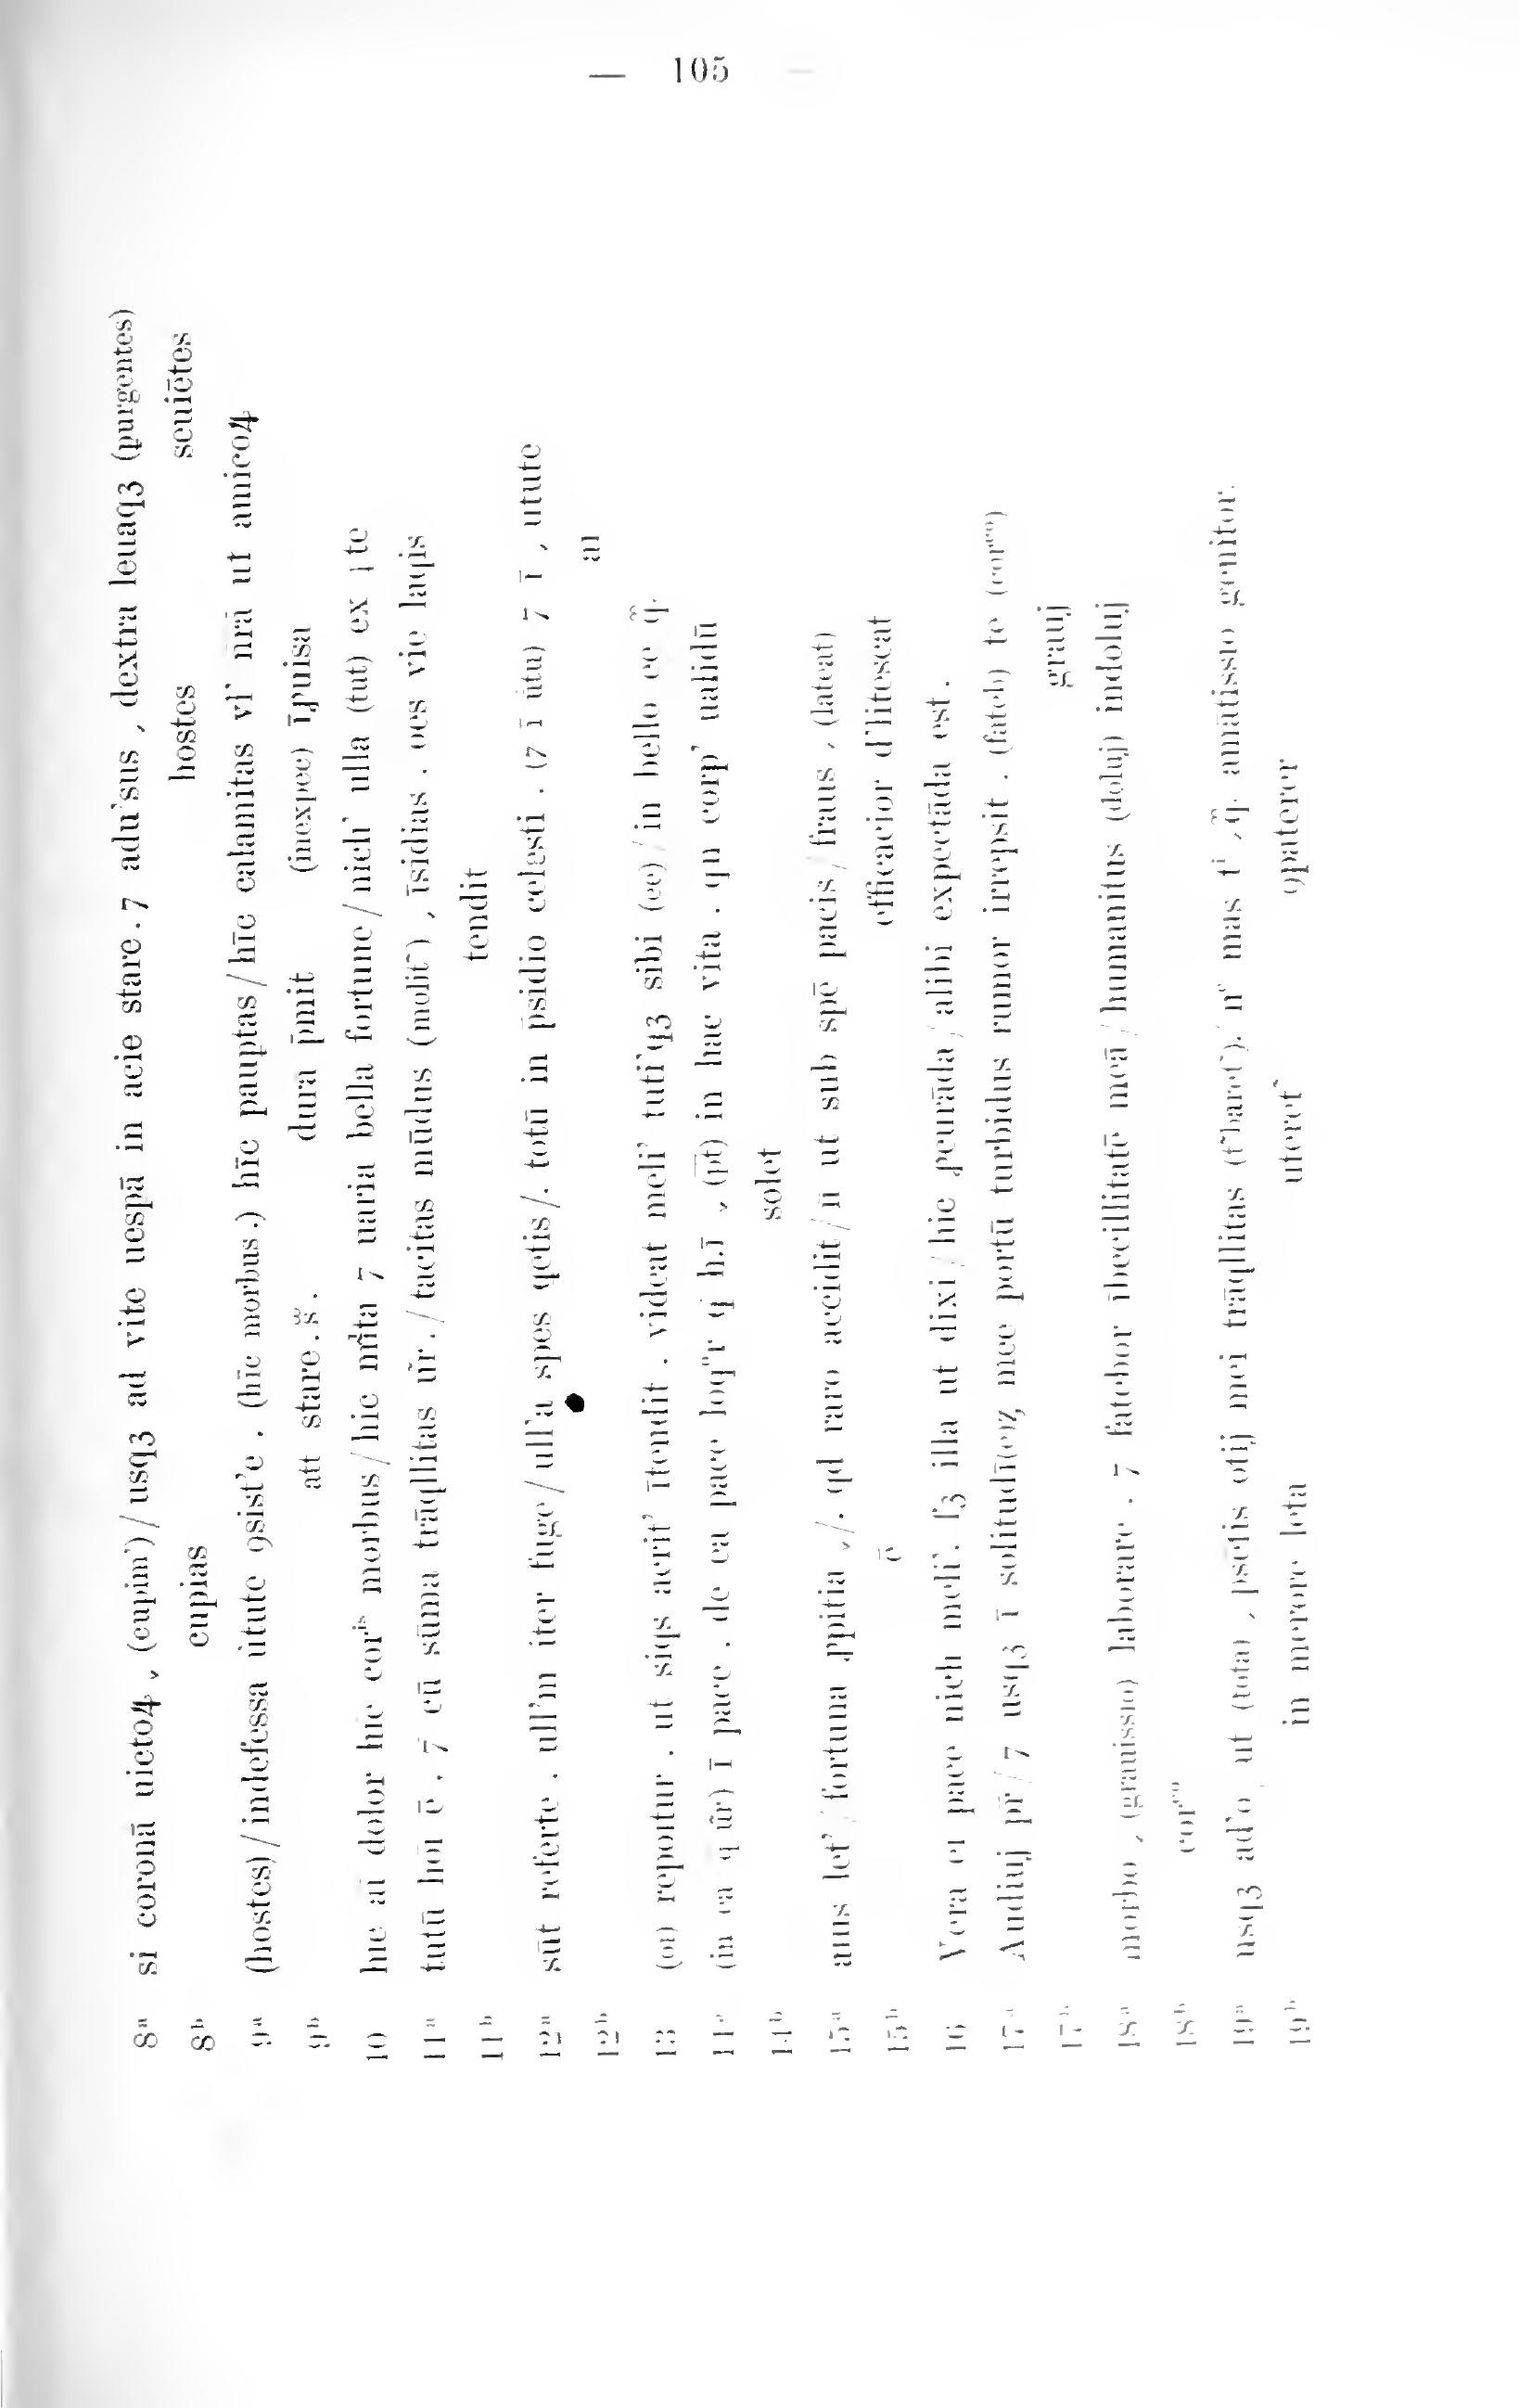 — 105 —
8ᵃ si coronā uicto4ˬ (cupim')/ usqꝫ ad vite uespā in acie stare . 7 adu'sus , dextra leuaqꝫ (purgentes)
8ᵇ cupias hostes seuiētes
9ᵃ (hostes)/ indefessa ūtute ꝯsist'e . (hīc morbus.) hīc pauptas/ hīc calamitas vl' nrā ut amico4
9ᵇ att stare . dura p̄mit (inexpec) īꝓuisa
10 hic dolor hīc corⁱˢ morbus/ hic m̄ta 7 uaria bella fortune/ nich' ulla (tut) ex te
11ᵃ tutū hoī ē . 7 cū sūma trāqllitas ūr ./ tacitas mūdus (molit') , īsidias . oēs vie laqis
11ᵇ tendit
12ᵃ sūt referte . ull'm iter fuge/ ull'a spes qetis/. totū in p̄sidio celesti . (7 ī ūtu) 7 ī , utute
12ᵇ aī
13 repoītur . ut siqs acrit' ītendit . videat meli' tuti'qꝫ sibi (ee)/ in bello ee q̄.
14ᵃ (in ea q ūr) ī pace . de ea pace loqʳr (p̄t) in hac vita . qn corp' ualidū
14ᵇ solet
15ᵃ fortuna ꝓpitia ˬ/. qd raro accidit/ n̄ ut sub spē pacis/ fraus , (lateat)
15ᵇ ē efficacior d'litescat
16 Vera pace nich meli'. illa ut dixi/ hic ꝓcurāda/ alibi expectāda est .
17ᵃ Audiuj pr̄/ 7 usqꝫ ī mee portū turbidus rumor irrepsit . (fateb) te (corʳᵉᵒ)
17ᵇ grauj
18ᵃ morbo , (grauissio) laborare . 7 fatebor ībecillitatē meā/ humanitus (doluj) indoluj
18ᵇ
19ᵃ usqꝫ ad'o ut (tota) otij mei trāqllitas amātissio genitor.
19ᵇ in merore leta uteret' ꝯpaterer